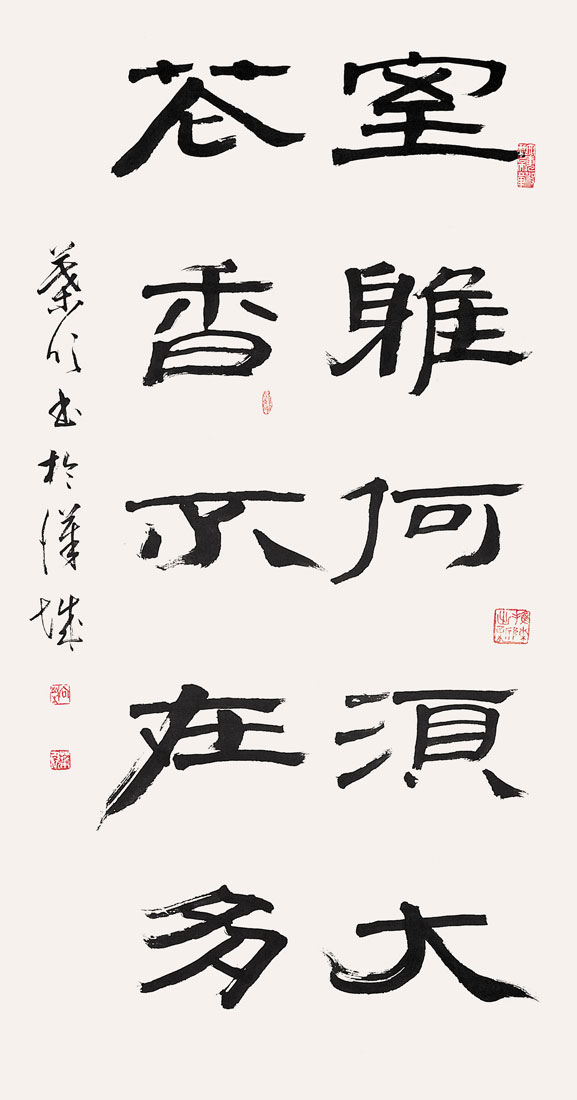 室雅何須大
花香不在多
書於漢城